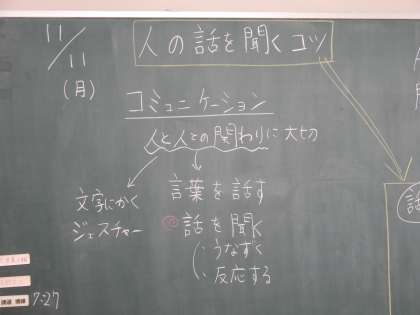 11/11
(月)
人の話を聞くコツ
コミュニケーション
人と人との関わりに大切
文字にかく
ジェスチャー
言葉を話す
◎話を聞く
・うなずく
・反応する
話
7:27